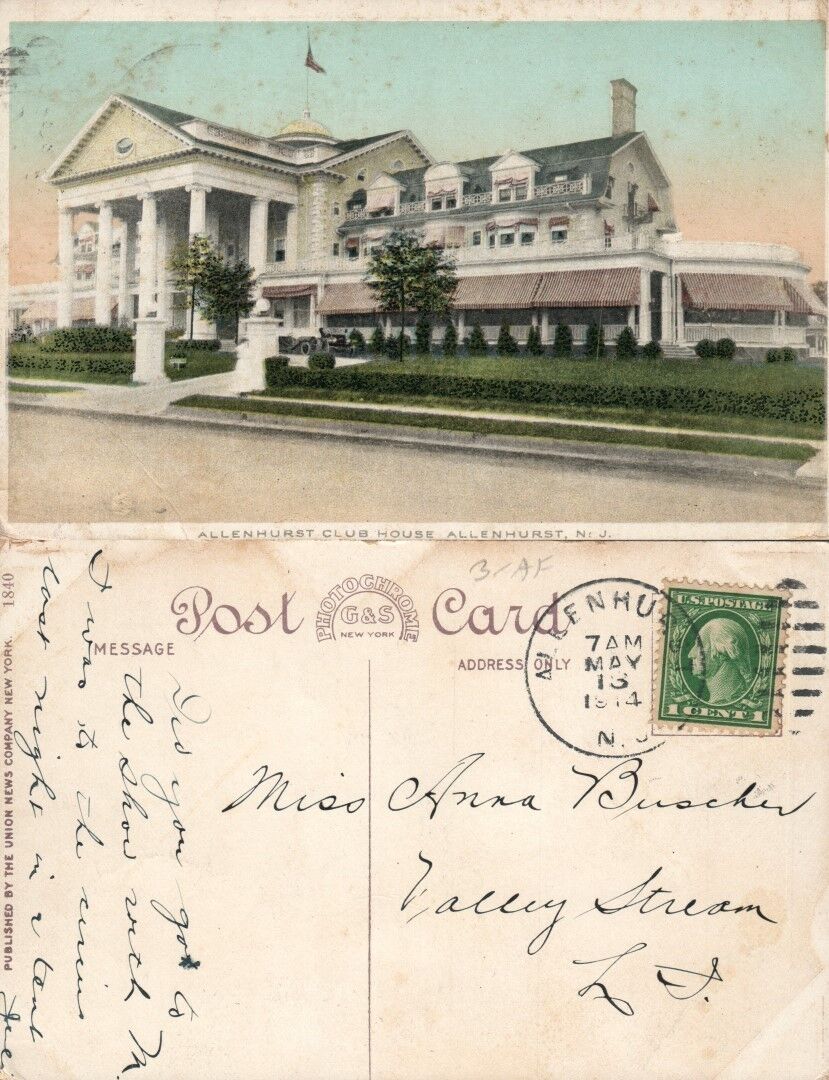 ALLENHURST CLUB HOUSE ALLENHURST, N. J.
3-AF
Post Card
PHOTOCHROME
G&S
NEW YORK
MESSAGE
ADDRESS ONLY
ALLENHU
7 AM
MAY
13
1914
N. J
U.S. POSTAGE
1 CENT 1
Miss Anna Buscher
Valley Stream
L I.
Did you go to
the show with M.
I was to the
last night in a tent
PUBLISHED BY THE UNION NEWS COMPANY NEW YORK. 1840